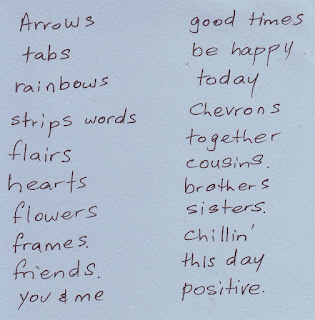 Arrows
tabs
rainbows
strips words
flairs
hearts
flowers
frames.
friends.
you & me
good times
be happy
today
Chevrons
together
cousins.
brothers
sisters.
Chillin'
this day
positive.